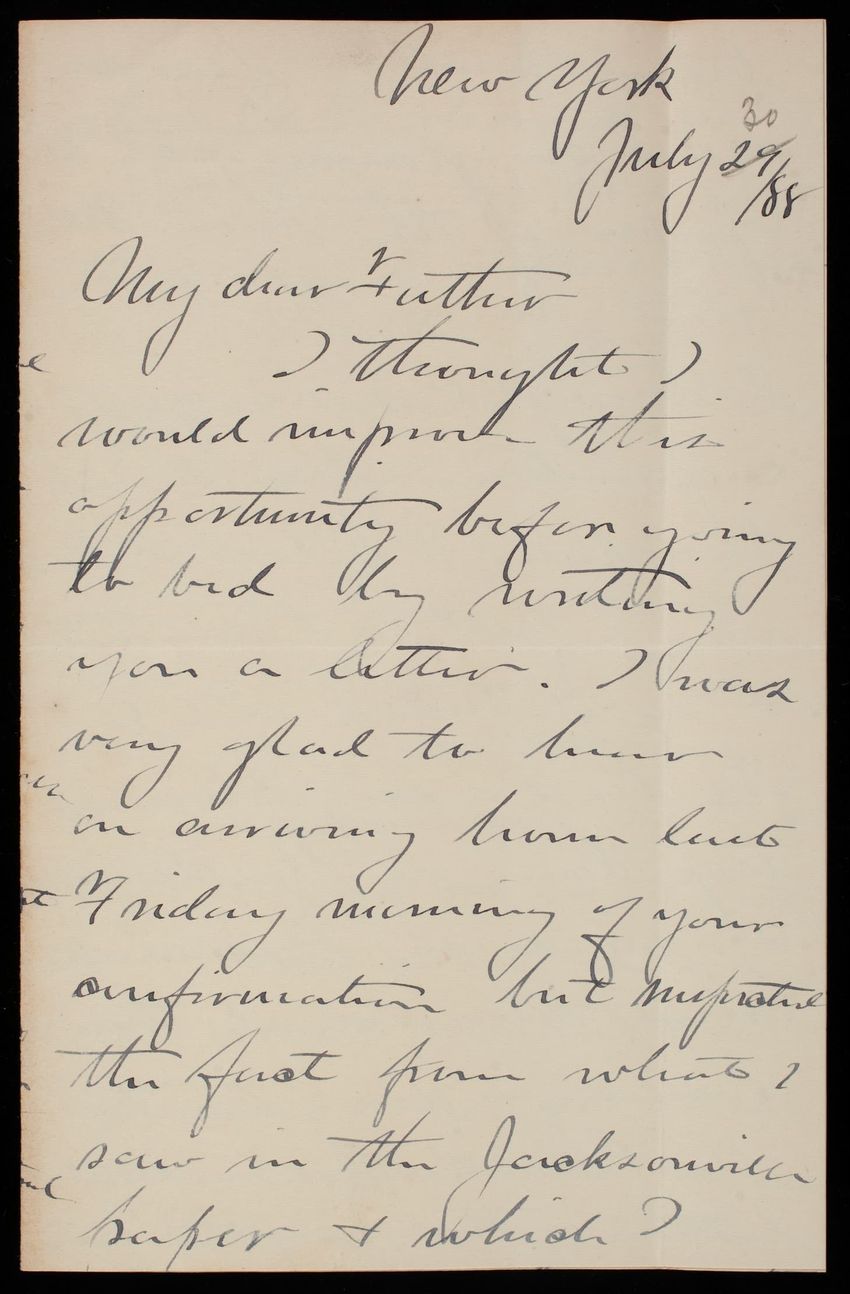 New York
30
July 29/88
My dear Father
I thought I
would improve this
opportunity before going
to bed by writing
you a letter. I was
very glad to hear
on arriving home last
Friday morning of your
confirmation but
the fact from what I
saw in the Jacksonville
paper & which I